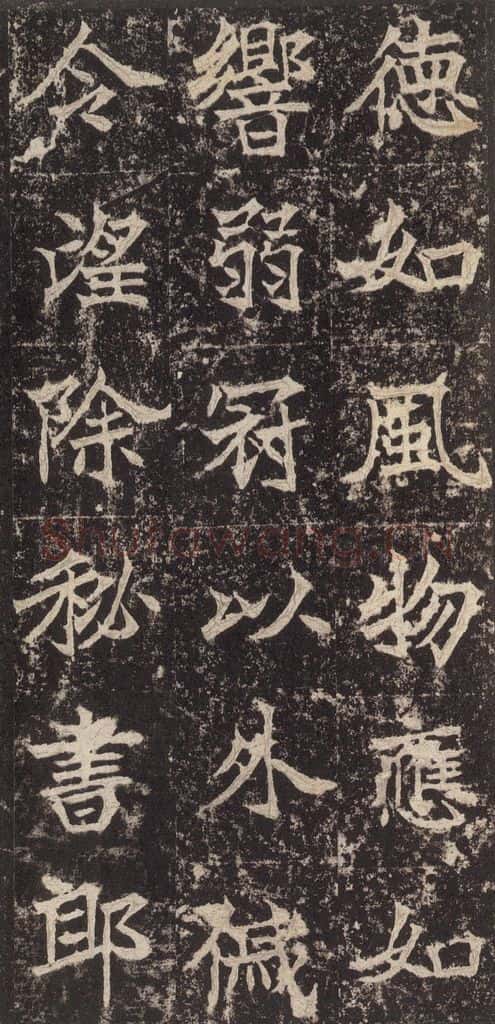 德如風物應如
響弱冠以外戚
令望除秘書郎
Shufawang.cn